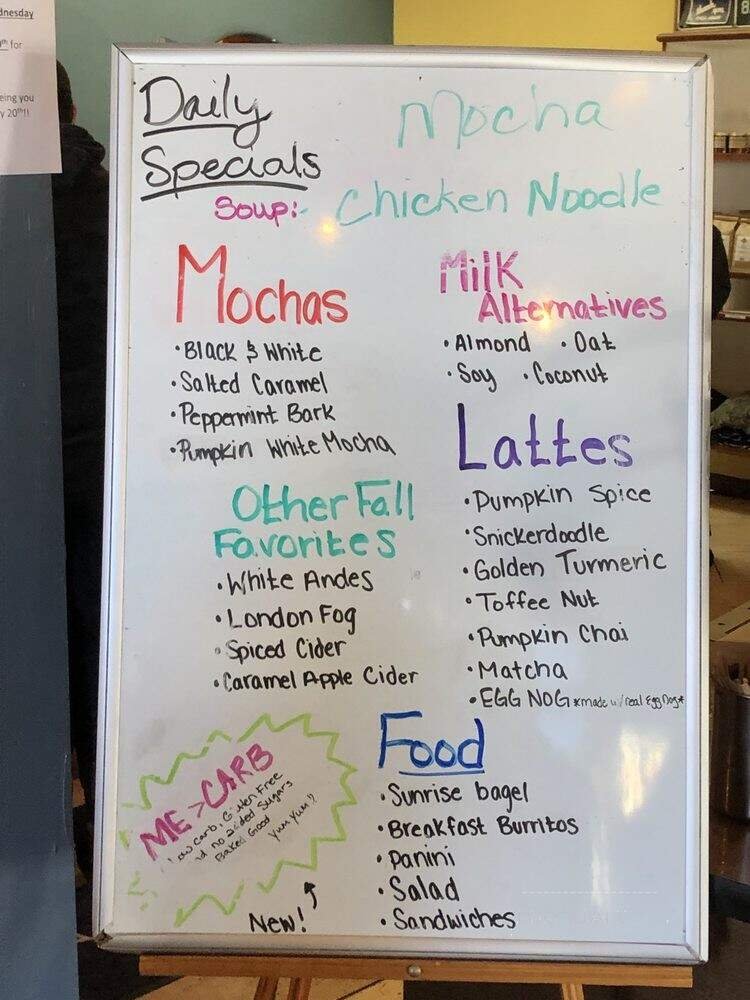 dnesday
th for
eing you
y 20th!!
8
Daily
Specials
Mocha
Soup:- Chicken Noodle
Mochas
• Black & White
• Salted Caramel
• Peppermint Bark
• Pumpkin White Mocha
Milk
Alternatives
• Almond • Oat
• Soy • Coconut
Lattes
• Pumpkin Spice
• Snickerdoodle
• Golden Turmeric
• Toffee Nut
• Pumpkin Chai
• Matcha
• EGG NOG *made w/real Egg Nog*
Other Fall
Favorites
• White Andes
• London Fog
• Spiced Cider
• Caramel Apple Cider
ME > CARB
Low carb, Gluten Free
nd no added Sugars
Baked Good
Yum Yum!!
New!
Food
• Sunrise bagel
• Breakfast Burritos
• Panini
• Salad
• Sandwiches